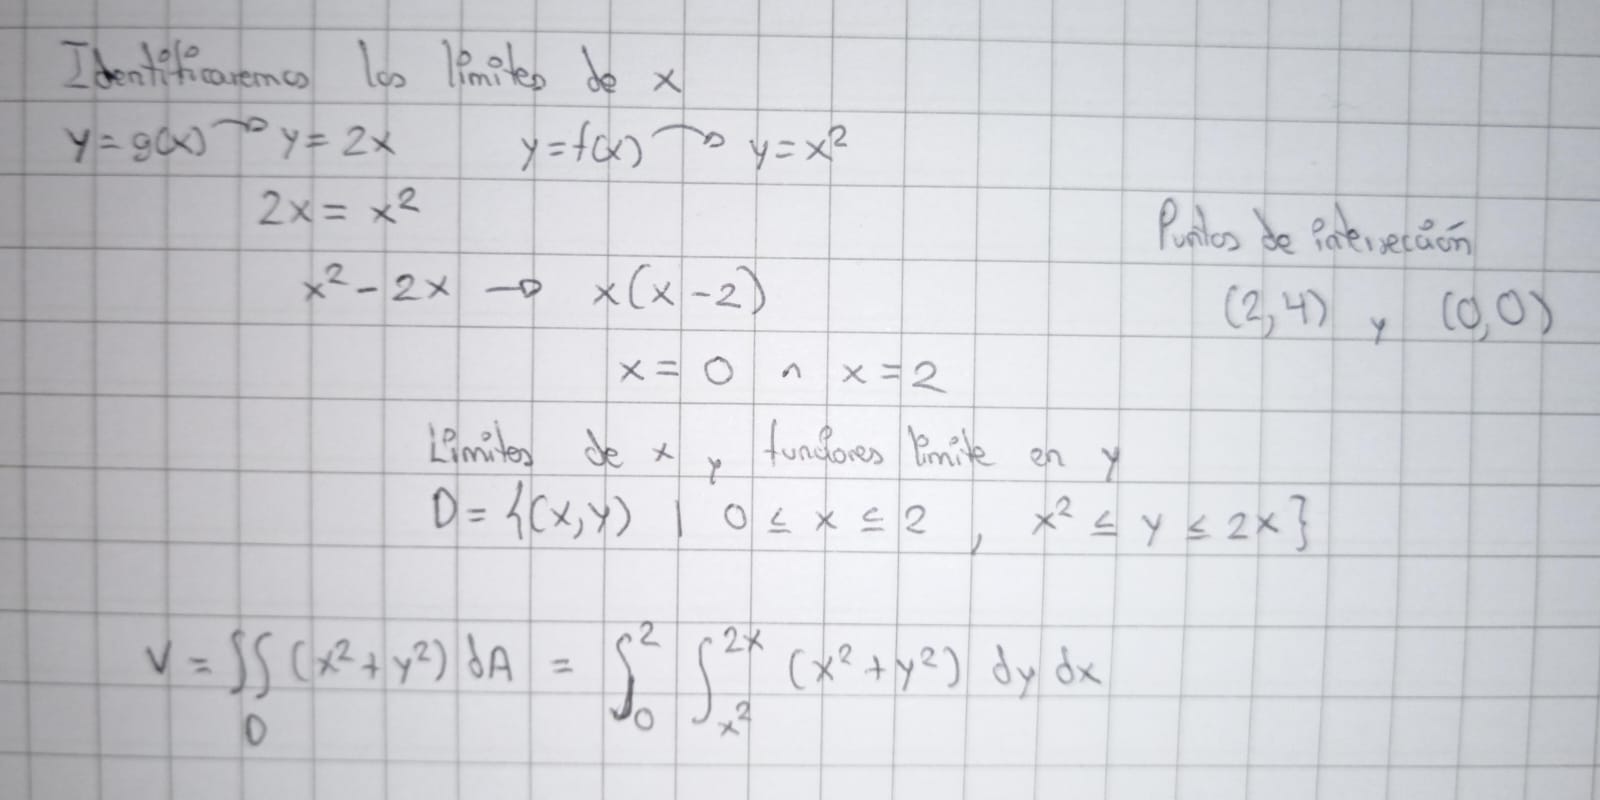 Identificaremos los límites de x
y = g(x) → y = 2x y = f(x) → y = x²
2x = x²
Puntos de intersección
x² - 2x → x(x - 2)
(2,4) y (0,0)
x = 0 ∧ x = 2
Límites de x y funciones límite en y
D = {(x,y) | 0 ≤ x ≤ 2 , x² ≤ y ≤ 2x}
V = ∬_D (x² + y²) dA = ∫_0^2 ∫_{x²}^{2x} (x² + y²) dy dx